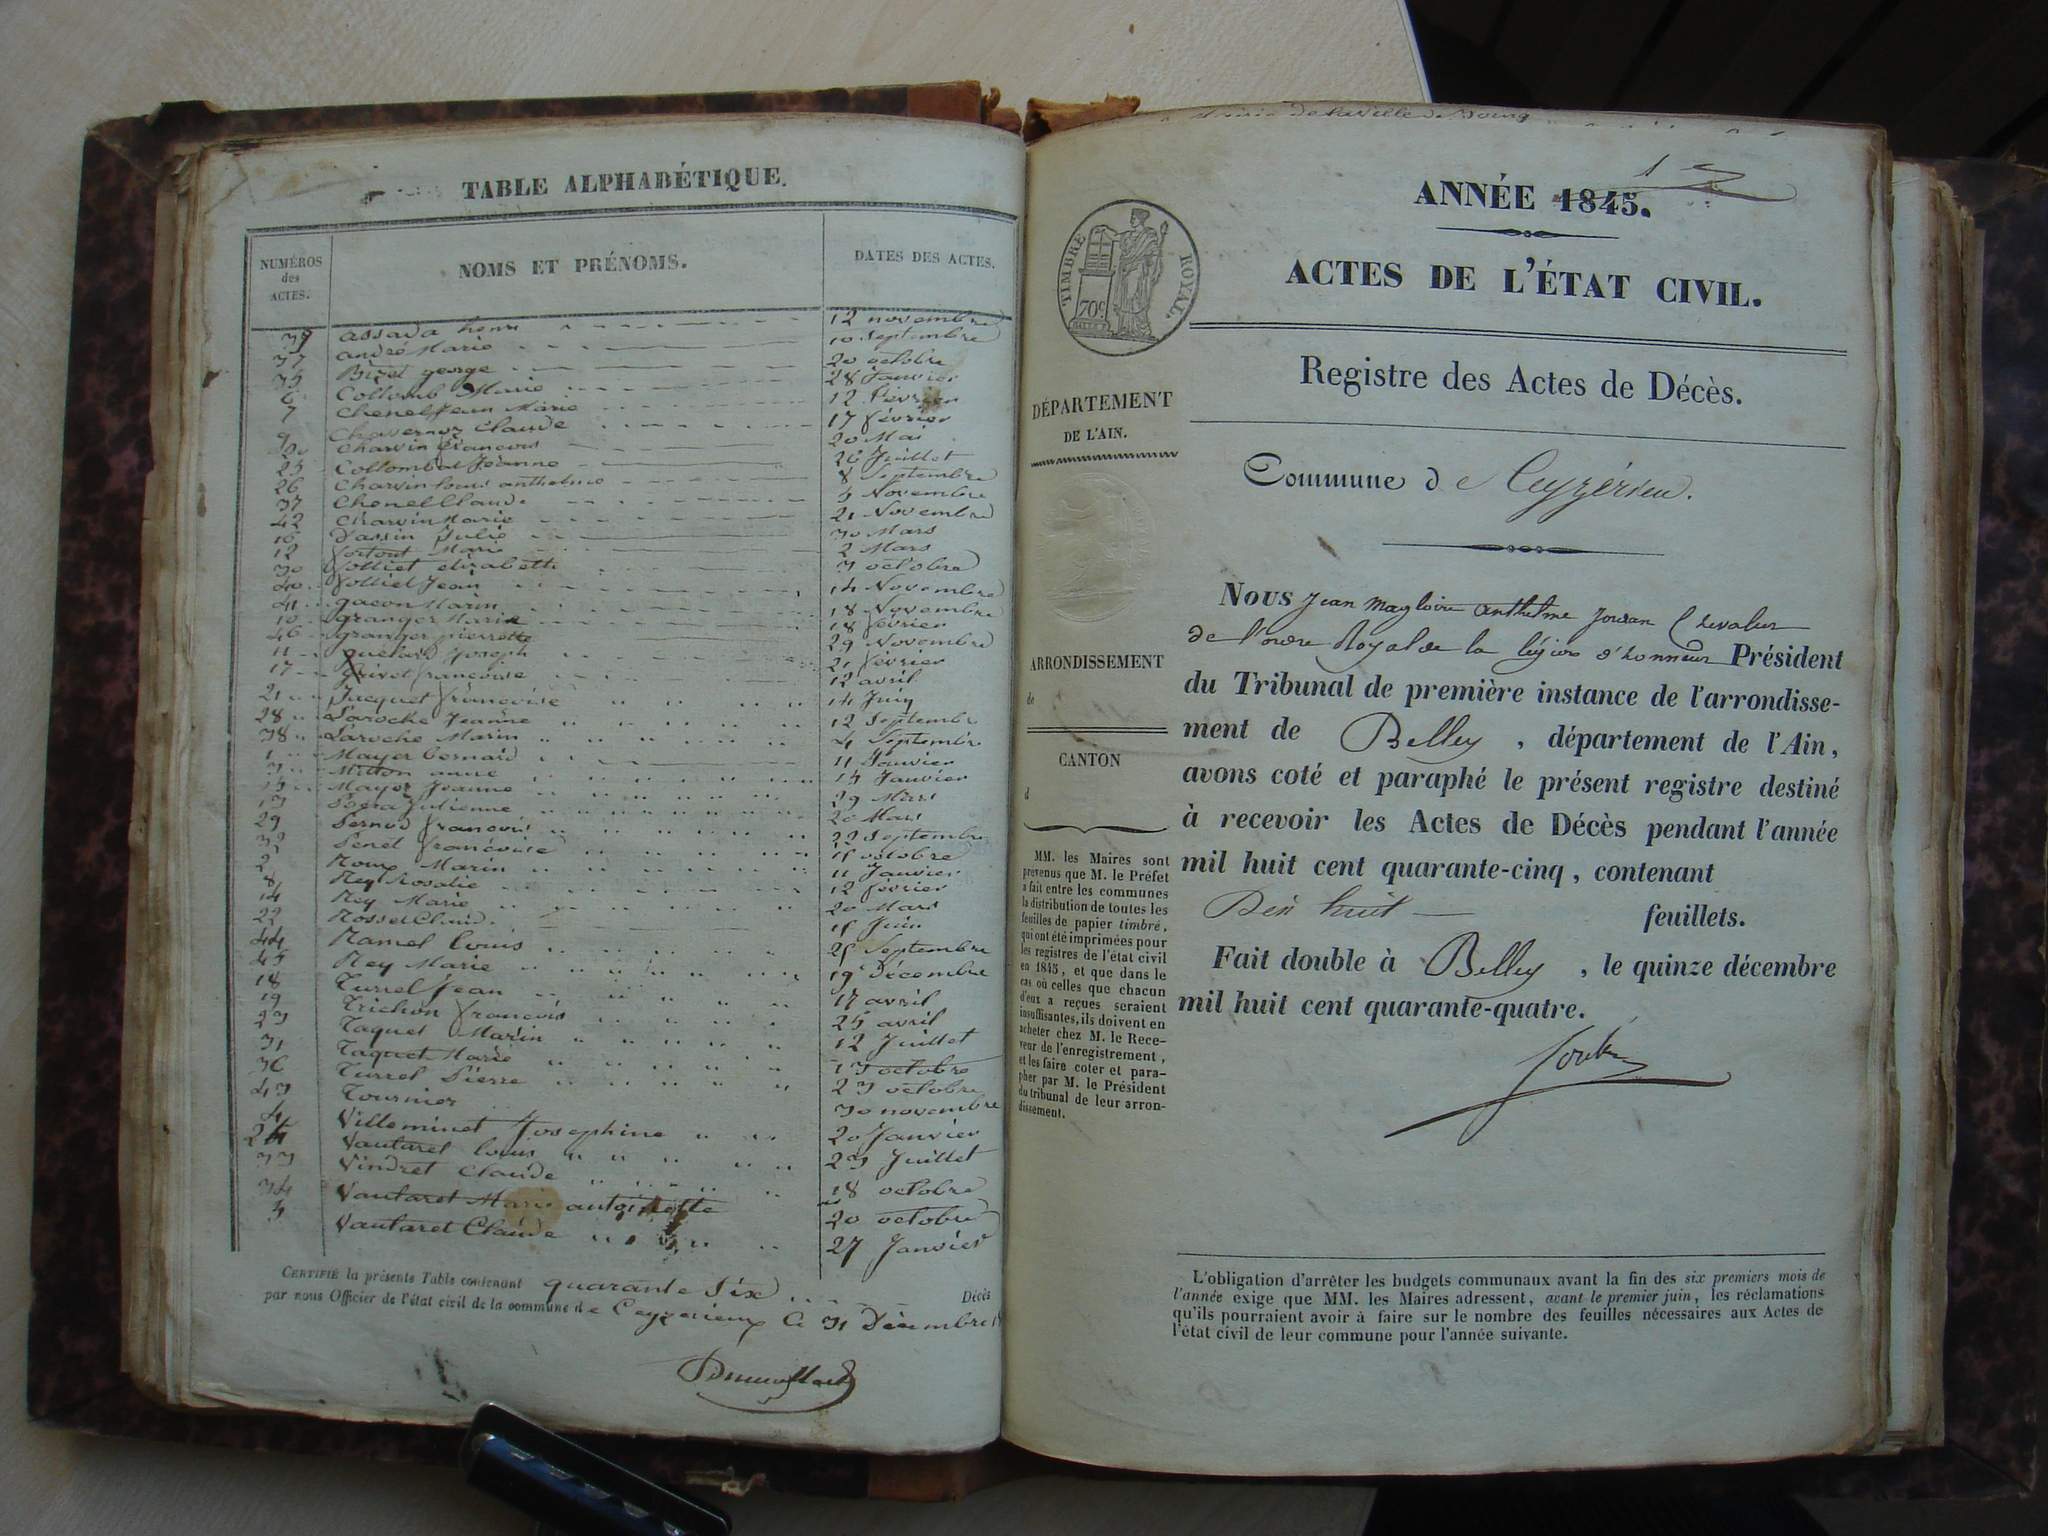 TABLE ALPHABÉTIQUE.
NUMÉROS
des
ACTES.
NOMS ET PRÉNOMS.
DATES DES ACTES.
assada henri 12 novembre
37 andré Marie 10 Septembre
35 Bizet george 20 octobre
6 Collomb Marie 28 Janvier
7 Chenel Jean Marie 12 février
9 Chavernoz Claude 17 février
Charvin françois 20 Mai
25 Collombat Jeanne 26 Juillet
26 Charvin louis anthelme 8 Septembre
37 Chenel Claude 5 Novembre
42 Charvin Marie 21 Novembre
16 Dassin Julie 30 Mars
12 fortout Marie 2 Mars
30 folliet elizabeth 3 octobre
40 folliet Jean 14 Novembre
41 gacon Marin 18 Novembre
10 granger Marie 18 février
46 granger pierrette 29 Novembre
11 Joseph 21 février
17 grivot francoise 12 avril
21 Jacquet francoise 14 Juin
28 Laroche Jeanne 12 Septembre
38 Laroche Marin 4 Septembre
1 Mayer bernard 11 Janvier
3 Miton anne 14 Janvier
15 Mayer Jeanne 29 Mars
13 Julienne 20 Mars
29 Pernod françois 22 Septembre
32 Penet francoise 15 octobre
2 Roux Marin 11 Janvier
8 Rey Rosalie 12 février
14 Rey Marie 20 Mars
22 Rosset Claud. 15 Juin
44 Ramel louis 25 Septembre
45 Rey Marie 19 Décembre
18 Turrel Jean 17 avril
19 Trichon françois 25 avril
23 Taquet Marin 12 Juillet
31 Taquet Marie 13 octobre
36 Turrel Pierre 23 octobre
43 Tournier 30 novembre
4 Villeminet Josephine 20 Janvier
24 Vautaret louis 23 Juillet
33 Vindret Claude 18 octobre
34 Vautaret Marie antoinette 20 octobre
5 Vautaret Claude 27 Janvier
CERTIFIÉ la présente Table contenant quarante Six Décès
par nous Officier de l'état civil de la commune de Ceyzerieux le 31 Décembre
Mairie de la ville de Bourg
ANNÉE 1845.
ACTES DE L'ÉTAT CIVIL.
TIMBRE ROYAL.
70c
Registre des Actes de Décès.
DÉPARTEMENT
DE L'AIN.
Commune de Ceyzérieu.
Nous Jean Magloire anthelme Jordan Chevalier
de l'ordre Royal de la légion d'honneur Président
du Tribunal de première instance de l'arrondisse-
ment de Belley, département de l'Ain,
avons coté et paraphé le présent registre destiné
à recevoir les Actes de Décès pendant l'année
mil huit cent quarante-cinq, contenant
Dix huit feuillets.
Fait double à Belley, le quinze décembre
mil huit cent quarante-quatre.
ARRONDISSEMENT
de
CANTON
d
MM. les Maires sont
prévenus que M. le Préfet
a fait entre les communes
la distribution de toutes les
feuilles de papier timbré,
qui ont été imprimées pour
les registres de l'état civil
en 1845, et que dans le
cas où celles que chacun
d'eux a reçues seraient
insuffisantes, ils doivent en
acheter chez M. le Rece-
veur de l'enregistrement,
et les faire coter et para-
pher par M. le Président
du tribunal de leur arron-
dissement.
L'obligation d'arrêter les budgets communaux avant la fin des six premiers mois de
l'année exige que MM. les Maires adressent, avant le premier juin, les réclamations
qu'ils pourraient avoir à faire sur le nombre des feuilles nécessaires aux Actes de
l'état civil de leur commune pour l'année suivante.